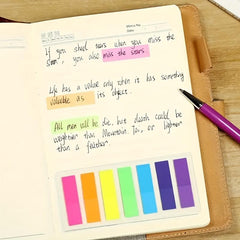 If you shed tears when you miss the
sun, you also miss the stars
Life has a value only when it has something
valuable as its object.
All men will die, but death could be
weightier than Mountain Tai, or lighter
than a feather.